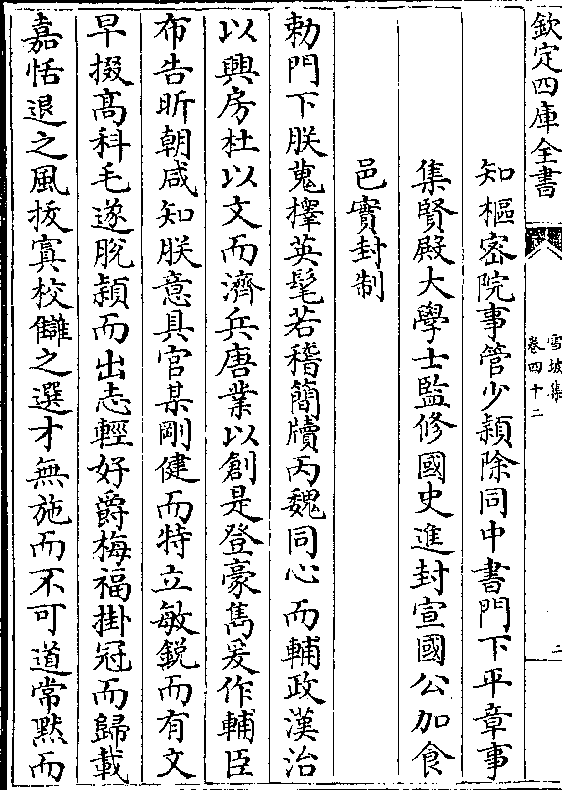 欽定四庫全書
雪坡集
卷四十二
二
知樞密院事管少頴除同中書門下平章事
集賢殿大學士監修國史進封宣國公加食
邑實封制
勅門下朕蒐擇英髦若稽簡牘丙魏同心而輔政漢治
以興房杜以文而濟兵唐業以創是登豪雋爰作輔臣
布告昕朝咸知朕意具官某剛健而特立敏鋭而有文
早掇髙科毛遂脫頴而出志輕好爵梅福掛冠而歸載
嘉恬退之風㧞寘校讎之選才無施而不可道常黙而